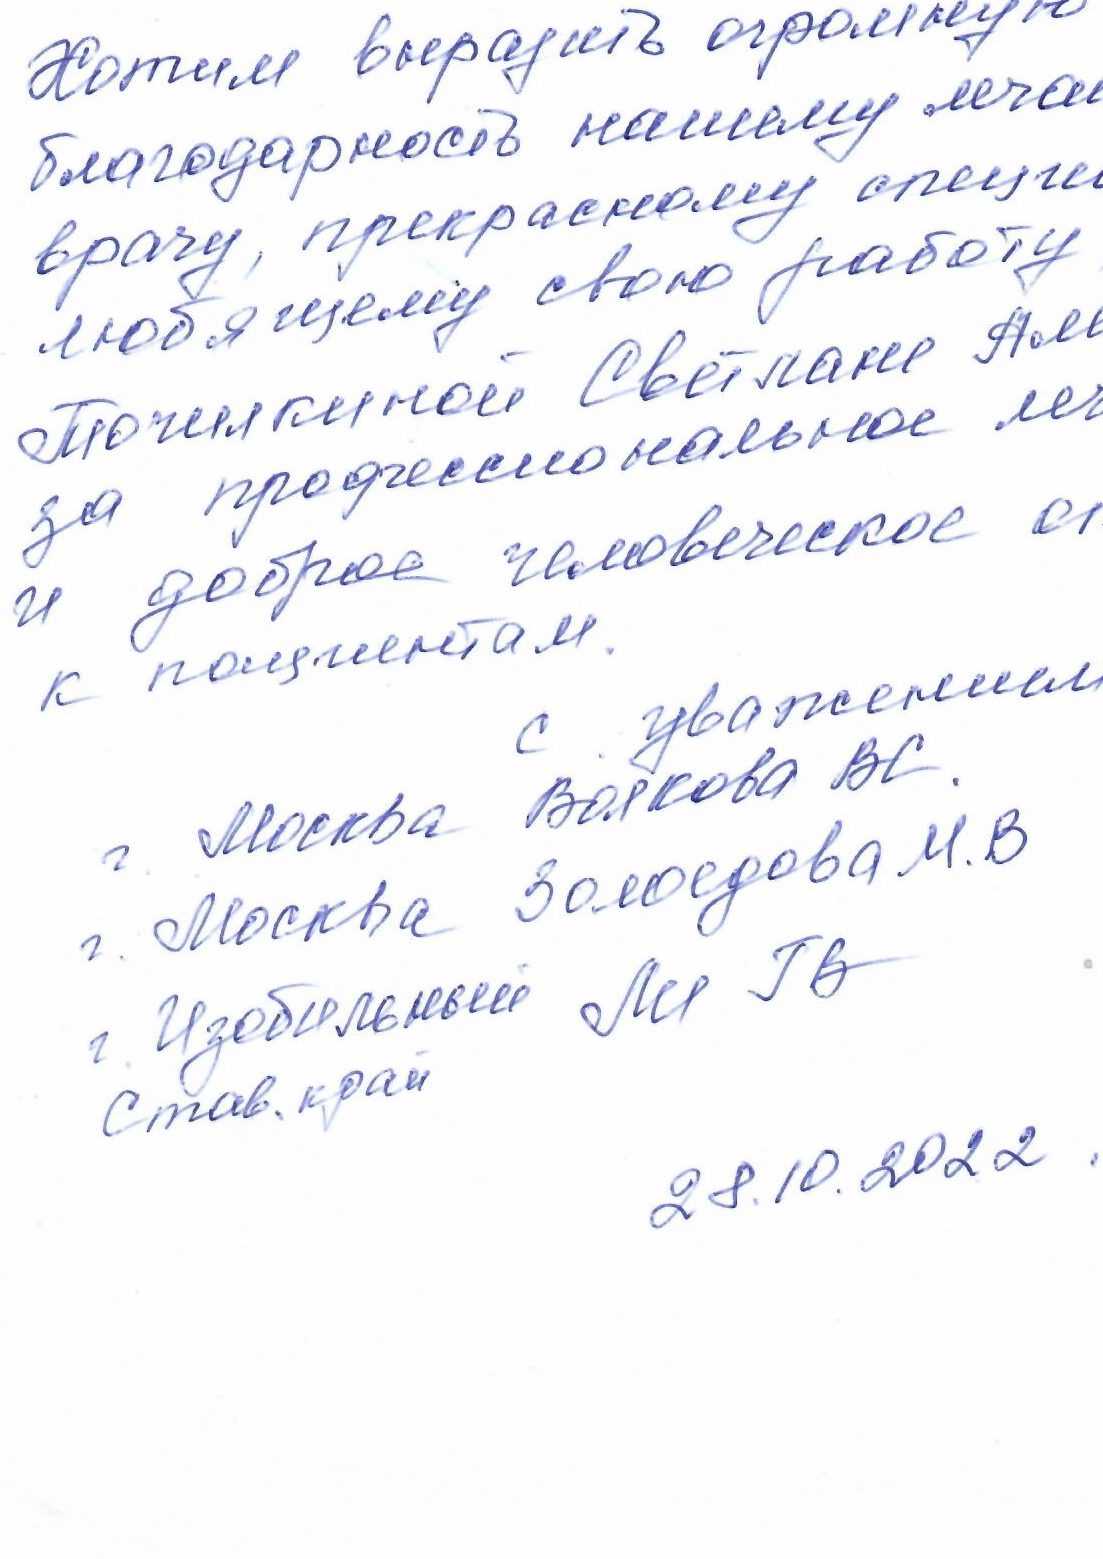 Хотим выразить огромную
благодарность нашему леча
врачу, прекрасному специ
любящему свою работу
Точилкиной Светлане Але
за профессиональное леч
и доброе человеческое от
к пациентам.
с уважением
г. Москва Волкова ВС.
г. Москва Золоедова М.В
г. Изобильный Ли ГВ
Став. край
28.10.2022.